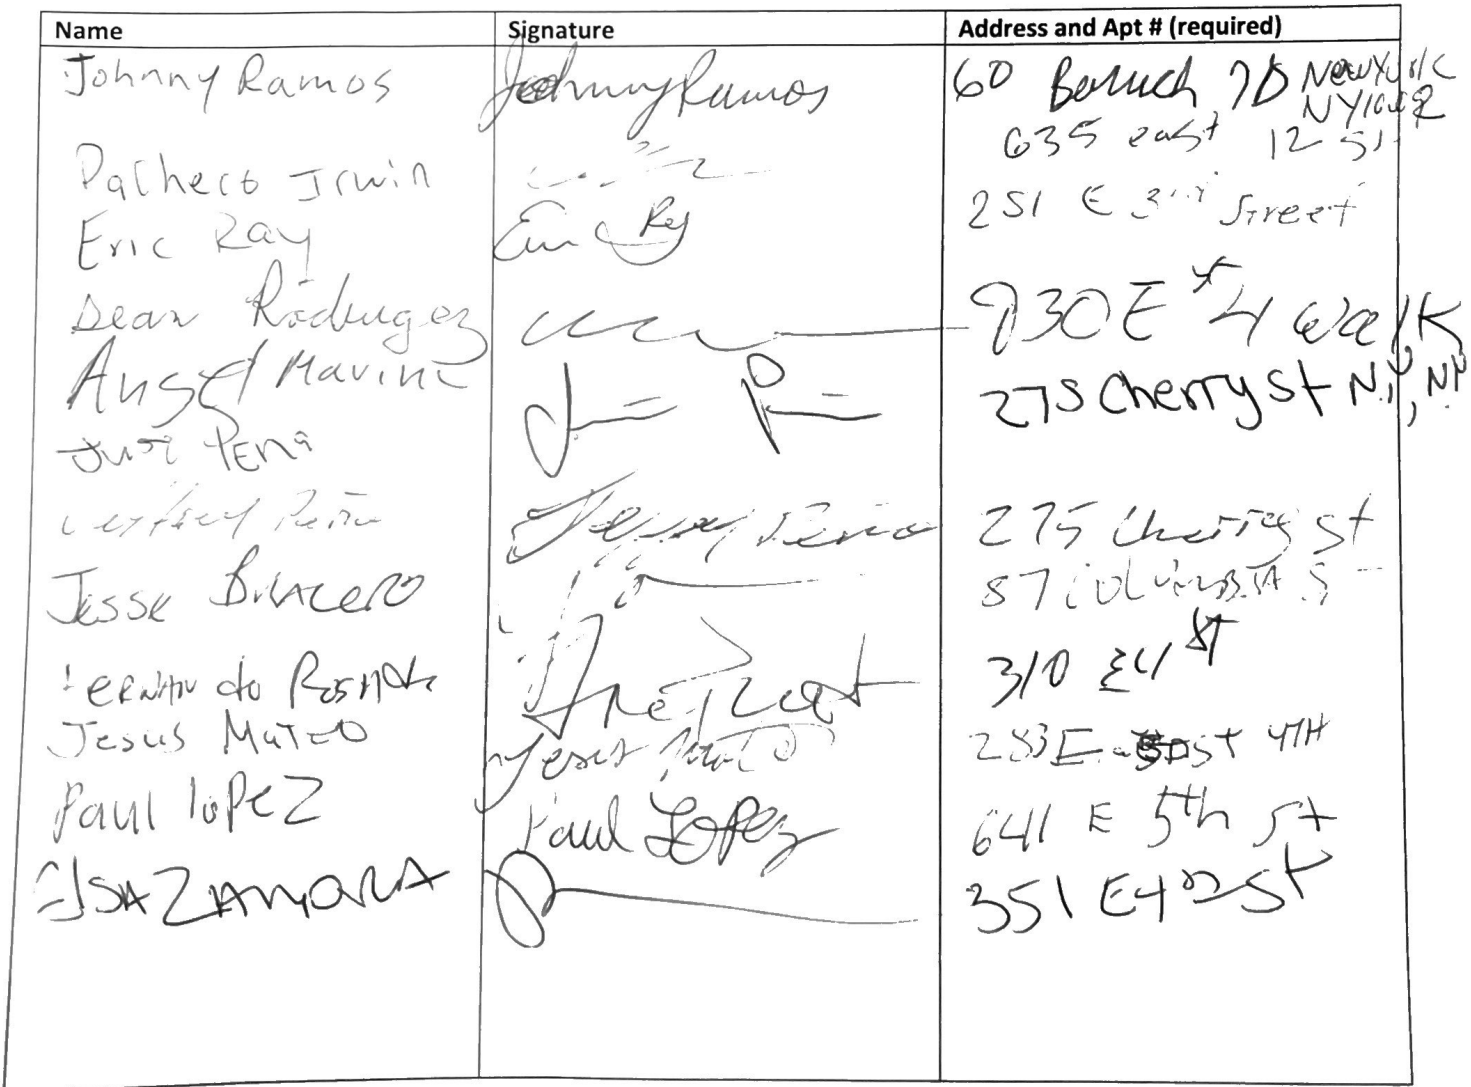 Name Signature Address and Apt # (required)
Johnny Ramos Johnny Ramos 60 Baruch 7D New York
NY 10002
635 east 12 St.
Pacheco Irwin
Eric Ray Eric Ray 251 E 3rd Street
Dean Rodriugez 930 E 4 Walk
Angel
275 Cherry St N.Y, NY
Jose Pena
Peña 275 Cherry St
Jesse Bracero 87 Columbia S
310 E 4 St
Jesus Mateo Jesus Mateo 283 East 4TH
Paul Lopez Paul Lopez 641 E 5th St
Elsa Zamora 351 E 4 St